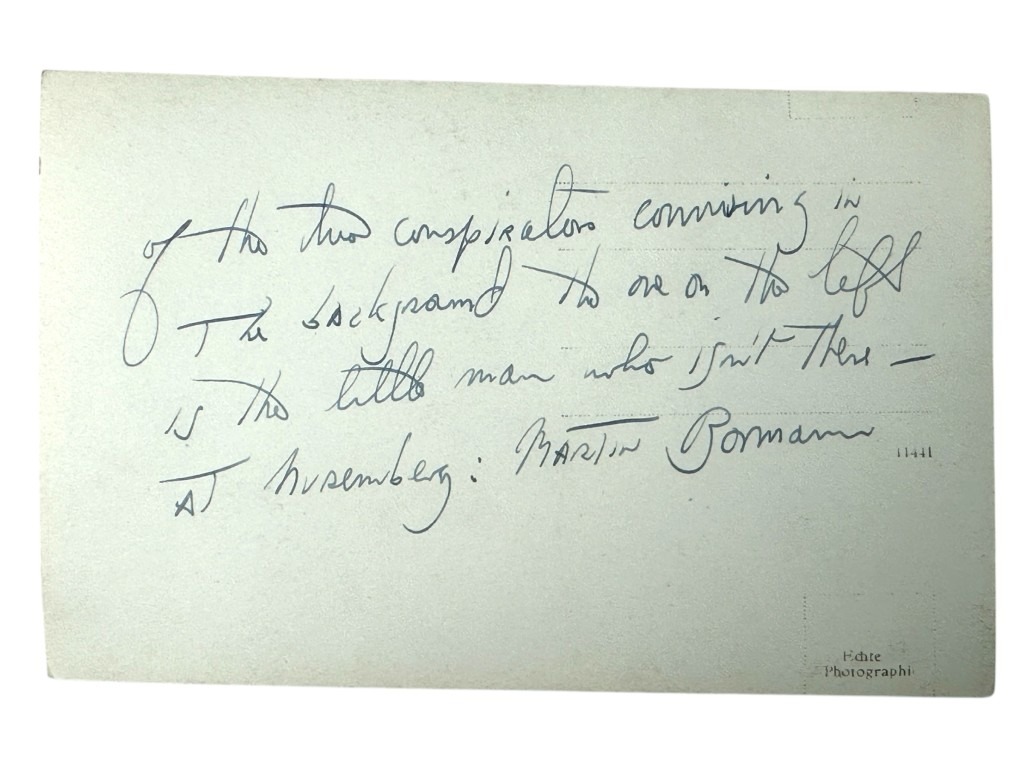 of the two conspirators conniving in
The background the one on the left
is the little man who isn't there —
AT Nuremberg: MARTIN Bormann
11441
Edite
Photographi